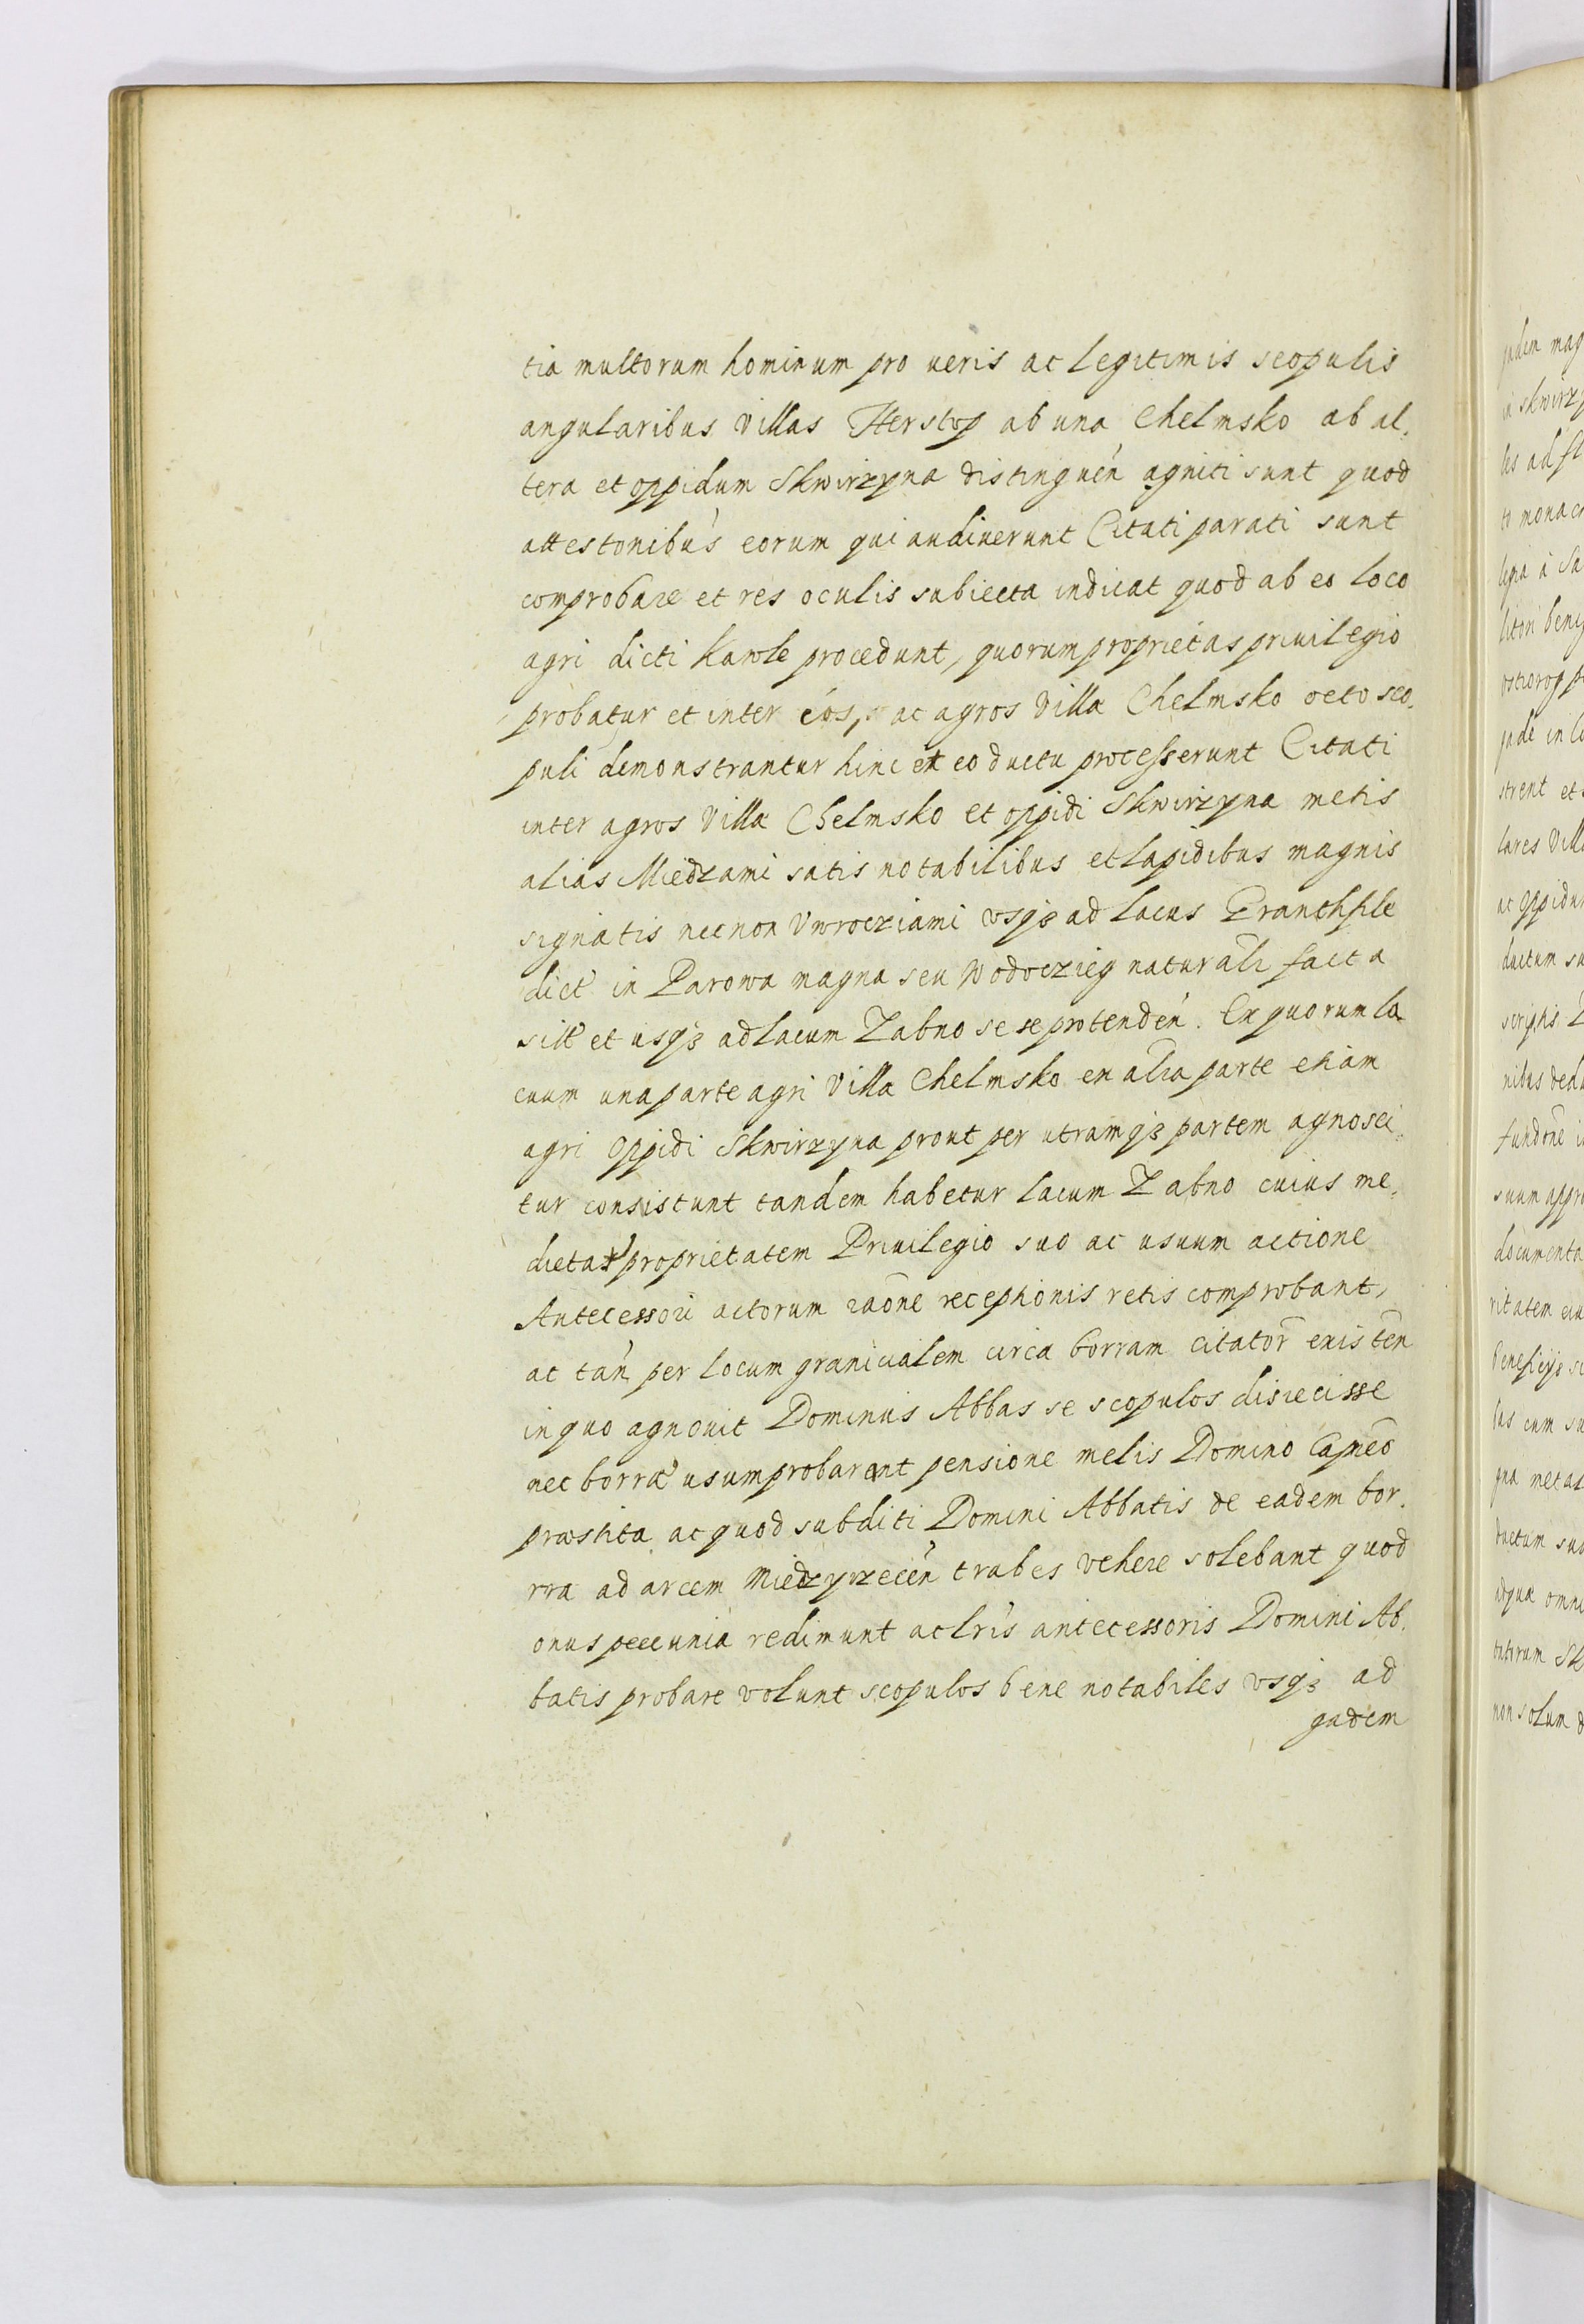 tia multorum hominum pro ueris ac legitimis scopulis
angularibus villas Herstop ab una Chelmsko ab al,
tera et oppidum Skwirzyna distinguen̄ agniti sunt quod
attestonibus eorum qui audiuerunt Citati parati sunt
comprobare et res oculis subiecta indicat quod ab eo loco
agri dicti Kawle procedunt, quorum proprietas priuilegio
probatur et inter eos, ac agros villæ Chelmsko octo sco,
puli demonstrantur hinc et eo ductu processerunt Citati
inter agros villæ Chelmsko et oppidi Skwirzyna metis
alias Miedzami satis notabilibus et lapidibus magnis
signatis nec non Vwrocziami vsqȝ ad lacus
dict̄ in Parowa magna seu Wodoczieg naturalī facta
sitt̄ et usqȝ ad lacum Zabno sese protenden̄. Ex quorum la,
cuum una parte agri villæ Chelmsko ex alīa parte etiam
agri oppidi Skwirzyna prout per utramqȝ partem agnosci,
tur consistunt tandem habetur lacum Zabno cuius me,
dietat̄ proprietatem Priuilegio suo ac usuum actione
Antecessori actorum raōne receptionis retis comprobant,
ac tan̄ per locum granicialem circa borram citator̄ existēn
in quo agnouit Dominus Abbas se scopulos disiecisse
nec borræ usum probarent pensione melis Domino Capneō
præstita ac quod subditi Domini Abbatis de eadem bor,
rra ad arcem Miedzyrzecen̄ trabes vehere solebant quod
onus peccunia redimunt ac lrīs antecessoris Domini Ab,
batis probare volunt scopulos bene notabiles vsqȝ ad
gadem